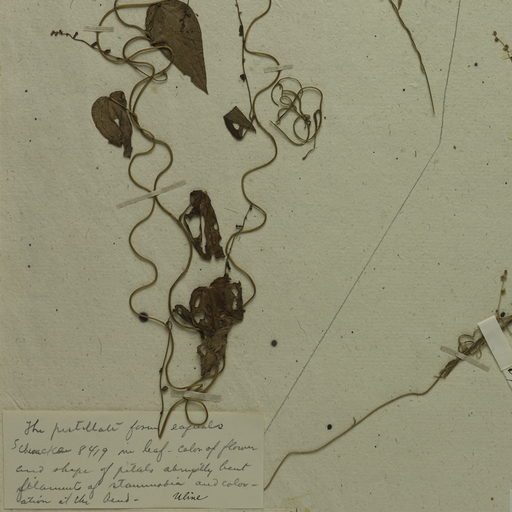 The pistillate form equals
Schwacke 8419 in leaf - color of flower
and shape of petals abruptly bent
filaments of staminodia and color-
ation at the bend - Uline